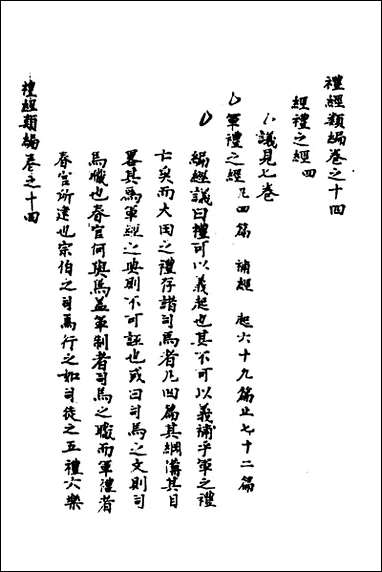 禮經類編卷之十四
經禮之經四
議見七卷
軍禮之經凡四篇 補經 起六十九篇止七十二篇
編經議曰禮可以義起也其不可以義補乎軍之禮
亡矣而大田之禮存諸司馬者凡四篇其綱溝其目
畧其為軍經之典則不可誣也或曰司馬之文則司
馬職也春官何與焉葢軍制者司馬之職而軍禮者
春官所建也宗伯之司馬行之如司徒之五禮六樂
禮經類編卷之十四